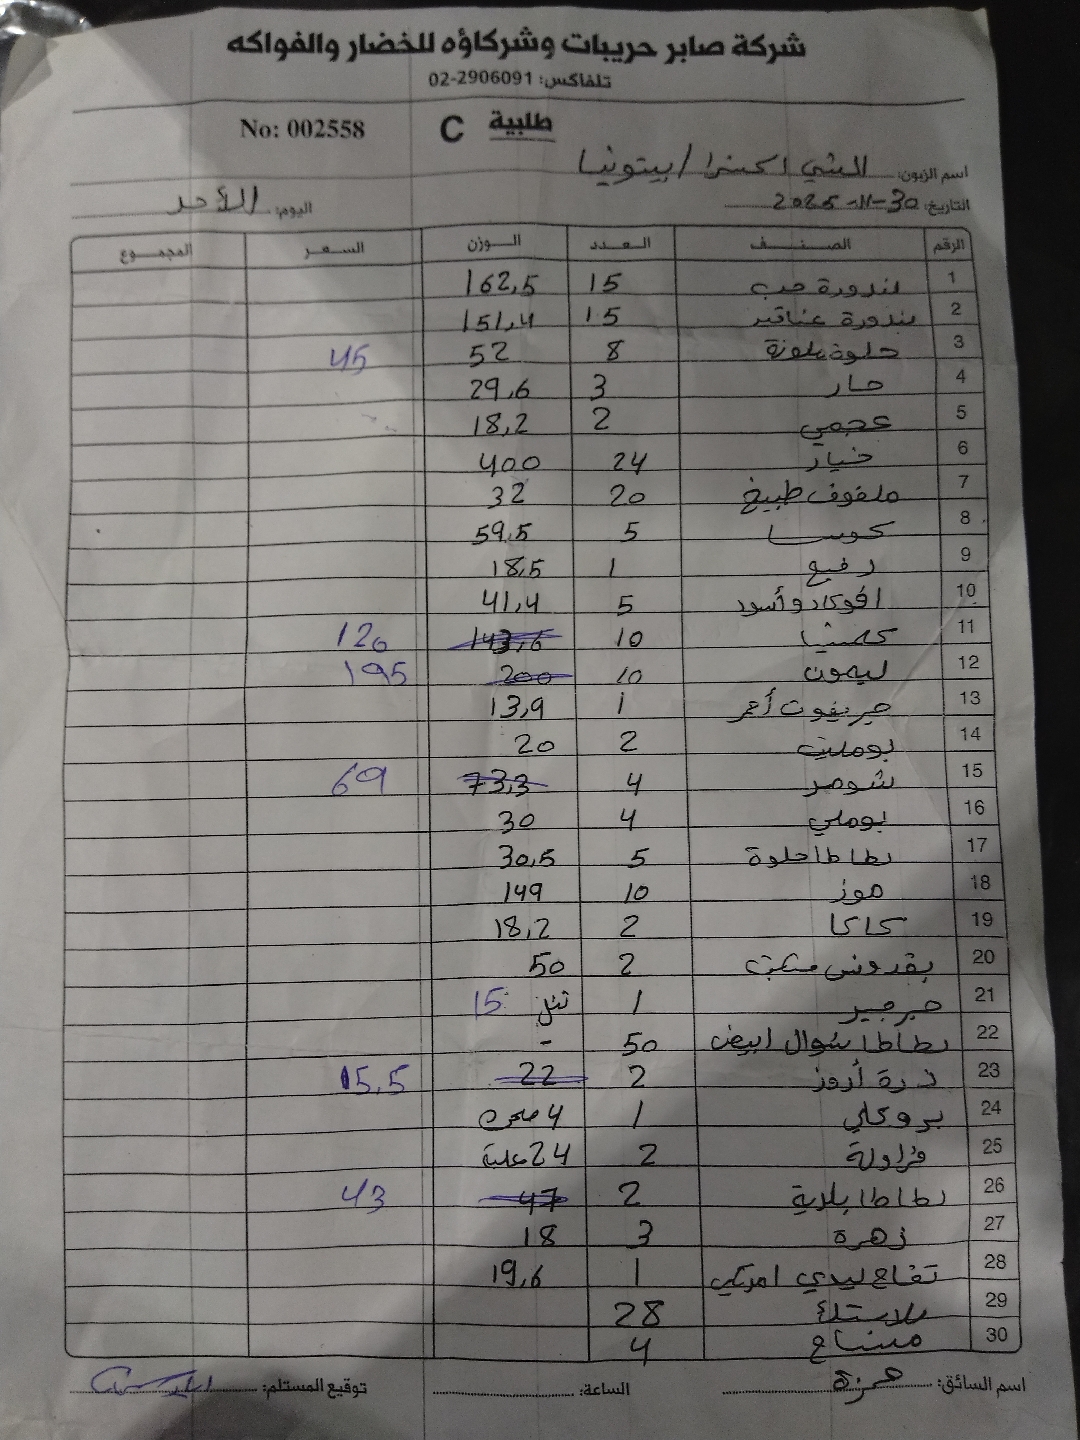 شركة صابر حريبات وشركاؤه للخضار والفواكه
تلفاكس: 02-2906091
No: 002558 C طلبية
اسم الزبون: الشني اكسترا / بيتونيا
التاريخ: 30-11-2025 اليوم: الأحد
الرقم الصنف العدد الوزن السعر المجموع
1 بندورة حب 15 162,5
2 بندورة عناقيد 15 151,4
3 حلوة ملونة 8 52 45
4 حار 3 29,6
5 عجمي 2 18,2
6 خيار 24 400
7 ملفوف طبيخ 20 32
8 كوسا 5 59,5
9 رفيع 1 18,5
10 افوكادو أسود 5 41,4
11 كلمنتينا 10 143,6 126
12 ليمون 10 200 195
13 جريفوت أحمر 1 13,9
14 بومليت 2 20
15 شومر 4 73,3 69
16 بوملي 4 30
17 بطاطا حلوة 5 30,5
18 موز 10 149
19 كاكا 2 18,2
20 بقدونس مكتب 2 50
21 جرجير 1 تنل 15
22 بطاطا شوال ابيض 50 -
23 ذرة أروز 2 22 15,5
24 بروكلي 1 4
25 فراولة 2 24 علبة
26 بطاطا بلدية 2 47 43
27 زهرة 3 18
28 تفاح ليدي امريكي 1 19,6
29 بلاستك 28
30 مشتاح 4
اسم السائق: حمزة الساعة: توقيع المستلم: